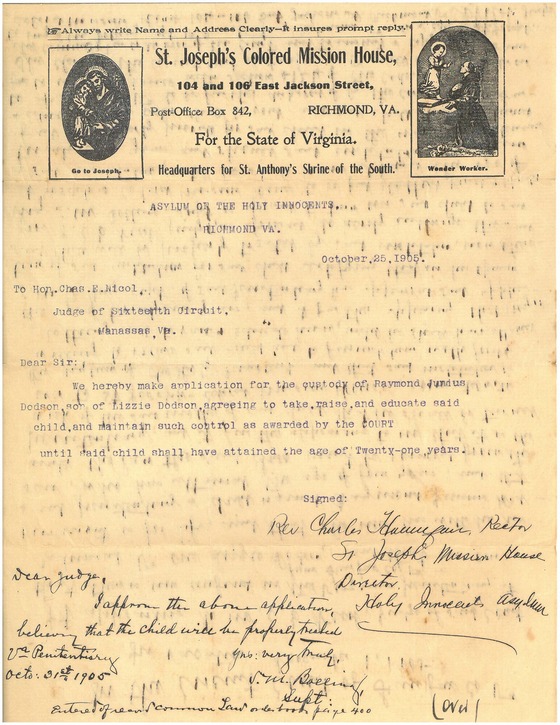 Always write Name and Address Clearly—it insures prompt reply.
St. Joseph's Colored Mission House,
104 and 106 East Jackson Street,
Post-Office Box 842, RICHMOND, VA.
For the State of Virginia.
Headquarters for St. Anthony's Shrine of the South.
Go to Joseph.
Wonder Worker.
ASYLUM OF THE HOLY INNOCENTS.
RICHMOND VA.
October,25,1905.
To Hon.Chas.E.Nicol
Judge of Sixteenth Circuit.
Manassas Va.
Dear Sir:
We hereby make application for the custody of Raymond Junius
Dodson,son of Lizzie Dodson,agreeing to take,raise,and educate said
child,and maintain such control as awarded by the COURT
until said child shall have attained the age of Twenty-one years.
Signed:
Rev. Charles Hannigan, Rector
St Joseph's Mission House
Director
Holy Innocents Asylum
Dear Judge,
I approve the above application,
believing that the child will be properly treated
Yrs: very truly,
Va Penitentiary
Octo: 31st 1905
S. M. Bolling,
Supt:
Entered of record common Law order book page 400
(over)